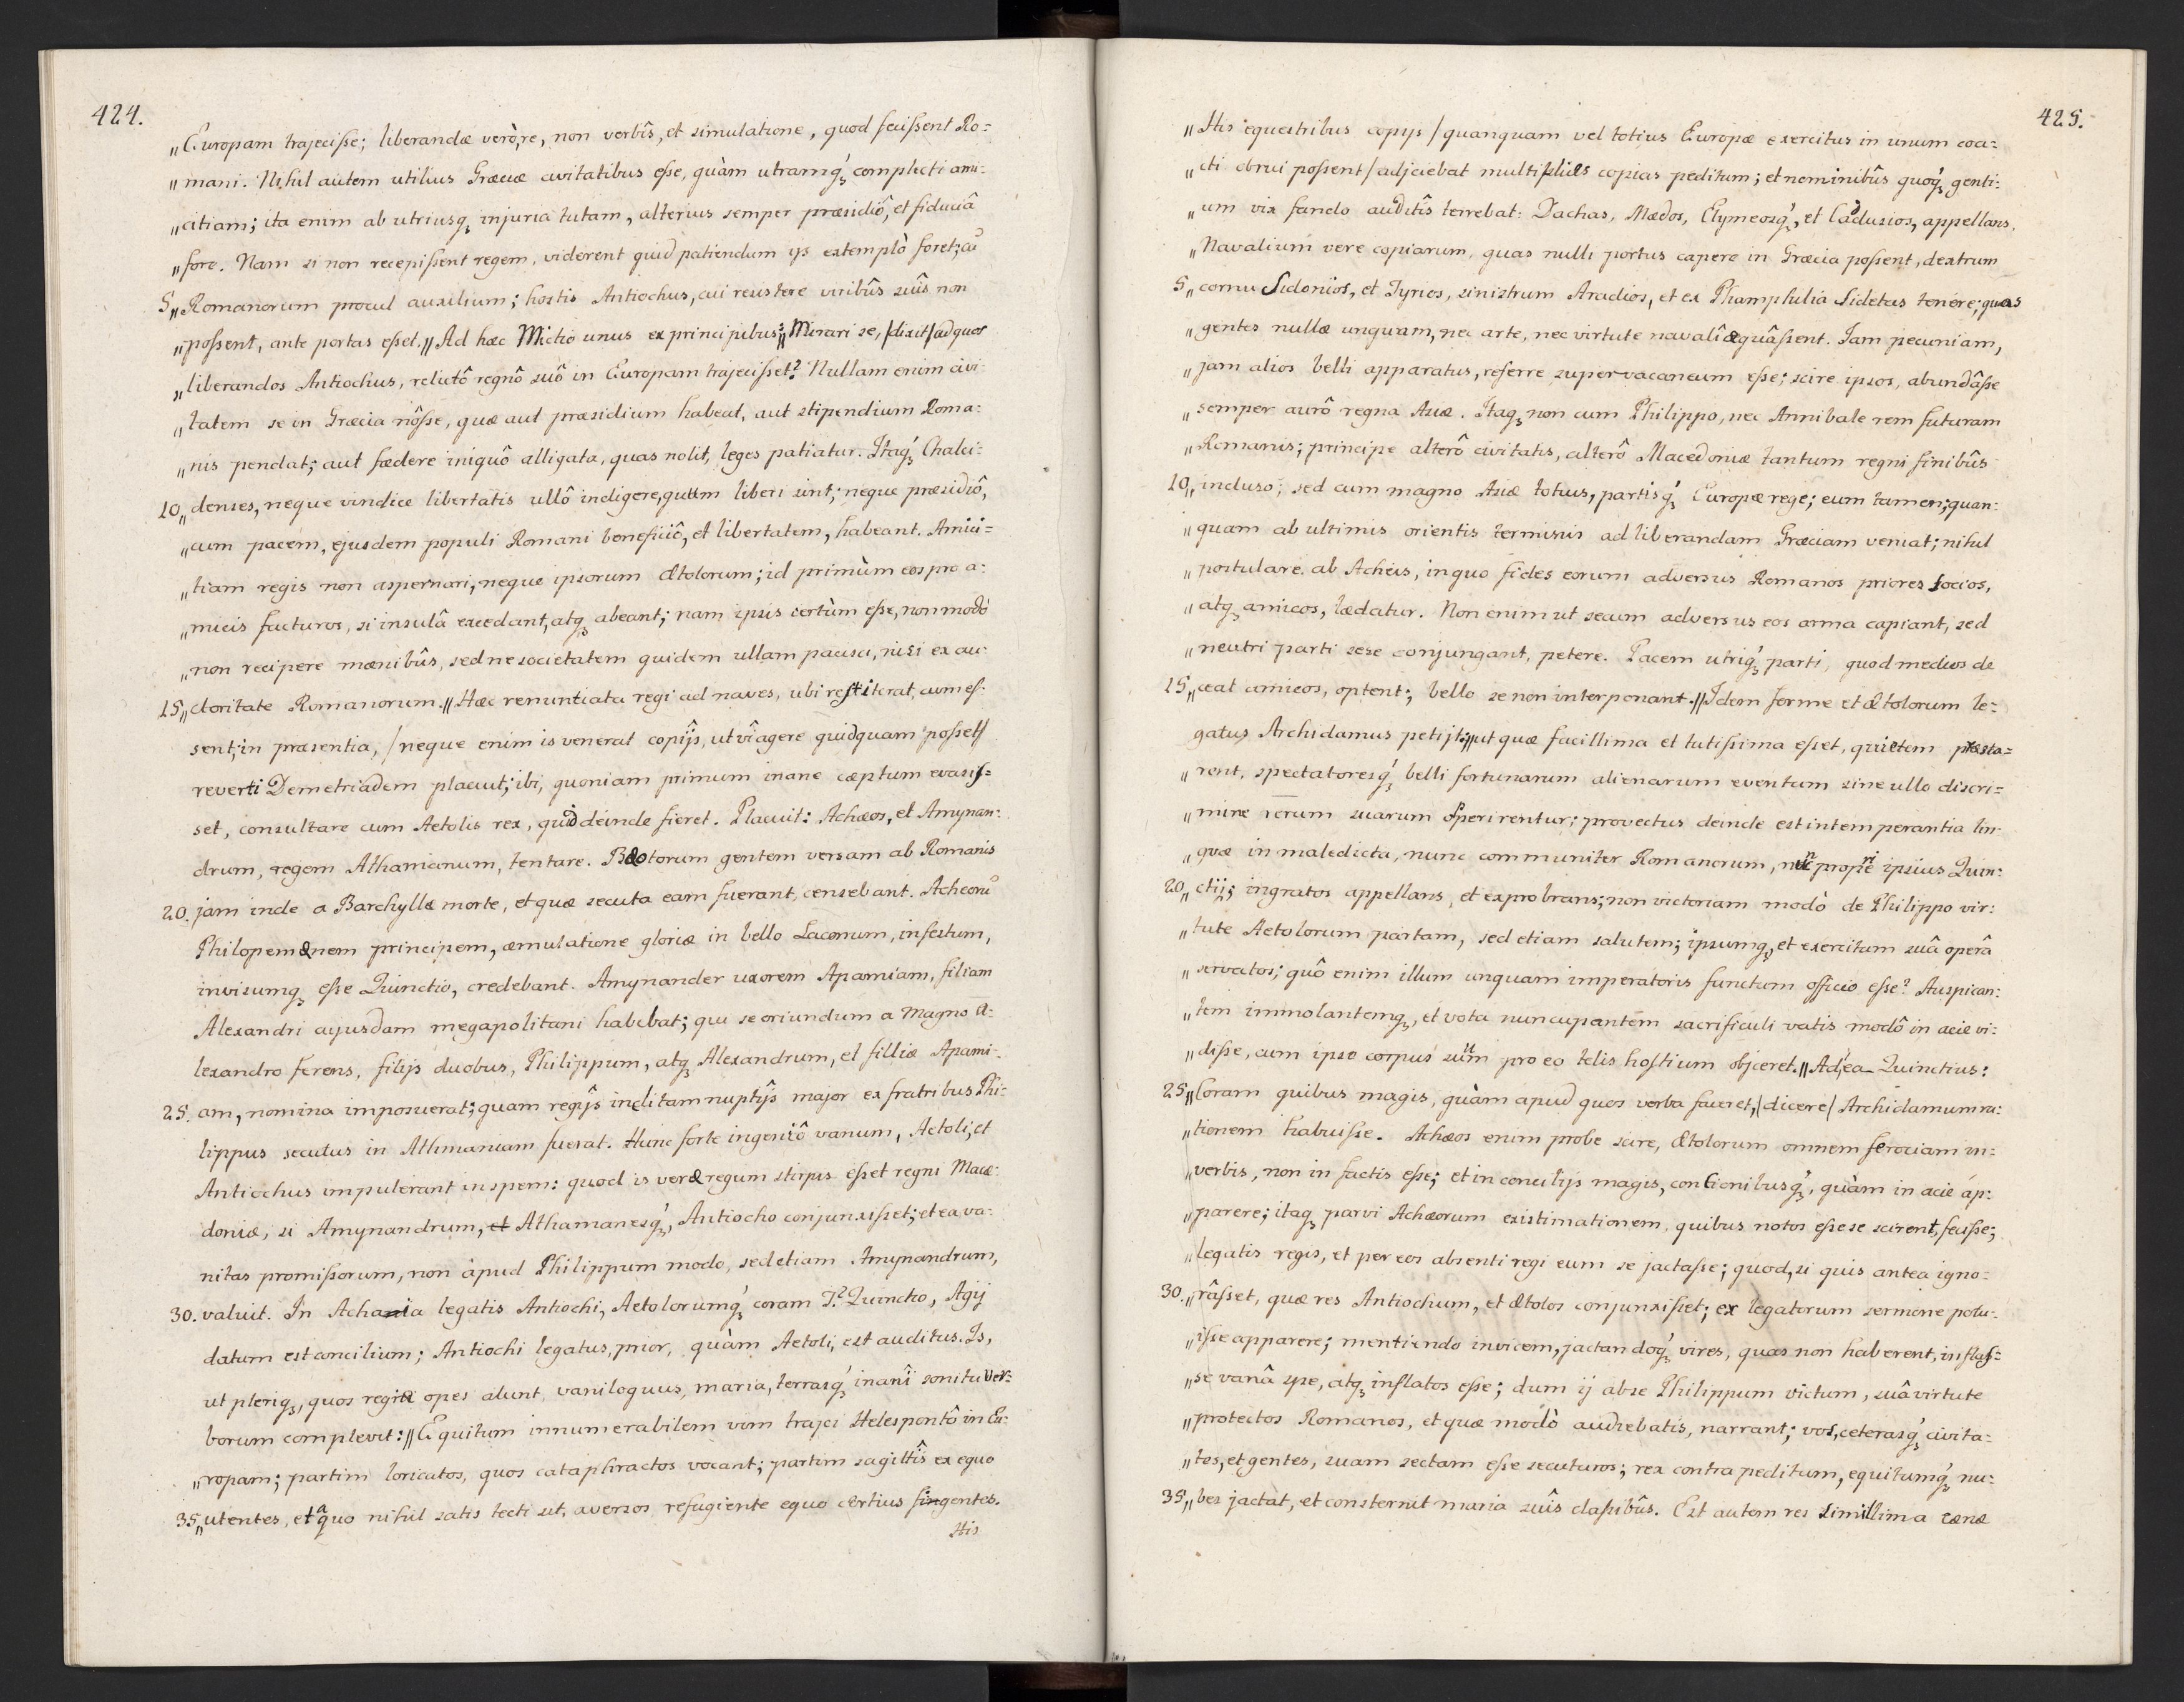 424.
„Europam trajecisse; liberandæ verò, re, non verbîs, et simulatione, quod fecissent Ro=
„mani. Nihil autem utilius Græciæ civitatibus esse, quàm utramq́ꝫ complecti ami-
„citiam; ita enim ab utriusqꝫ injuria tutam, alterius semper præsidiô, et fiduciâ
„fore. Nam si non recepissent regem, viderent quid patiendum ijs extemplò foret; cũ
5„Romanorum procul auxilium; hostis Antiochus, cui resistere viribûs suîs non
„possent, ante portas esset.„ Ad hæc Mictio unus ex principibus:„ Mirari se, /dixit/ ad quos
„liberandos Antiochus, relictô regnô suô in Europam trajecisset? Nullam enim civi-
„tatem se in Græcia nôsse, quæ aut præsidium habeat, aut stipendium Roma=
„nis pendat; aut fædere iniquô alligata, quas nolit, leges patiatur. Itaq́ꝫ Chalci=
10„denses, neque vindice libertatis ullô indigere, quum liberi sint; neque præsidiô,
„cum pacem, ejusdem populi Romani beneficiô, et libertatem, habeant. Amici=
„tiam regis non aspernari, neque ipsorum Ætolorum; id primùm eos pro a=
„micis facturos, si insulâ excedant, atqꝫ abeant; nam ipsis certùm esse, non modò
„non recipere mænibûs, sed ne societatem quidem ullam pacisci, nisi ex au=
15„ctoritate Romanorum.„ Hæc renuntiata regi ad naves, ubi restiterat, cum es=
sent; in præsentia, /neque enim is venerat copîjs, ut vî agere quidquam posset/
reverti Demetriadem placuit; ibi, quoniam primum inane cæptum evasis=
set, consultare cum Aetolis rex, quid deinde fieret. Placuit: Achæos, et Amynan=
drum, regem Athamanum, tentare. Bæotorum gentem versam ab Romanis
20. jam inde a Barchyllæ morte, et quæ secuta eam fuerant, censebant. Acheorũ
Philopemænem principem, æmulatione gloriæ in bello Laconum, infestum,
invisumqꝫ esse Quinctio, credebant. Amynander uxorem Apamiam, filiam
Alexandri cujusdam megapolitani habebat; qui se oriundum a Magno A=
lexandro ferens, filijs duobus, Philippum, atqꝫ Alexandrum, et filliæ Apami=
25. am, nomina imposuerat; quam regîjs inclitam nuptîjs major ex fratribus Phi=
lippus secutus in Athmaniam fuerat. Hunc forte ingeniô vanum, Aetoli, et
Antiochus impulerant in spem: quod is veræ regum stirpis esset regni Mace=
doniæ, si Amynandrum, et Athamanesq́ꝫ, Antiocho conjunxisset; et ea va=
nitas promissorum, non apud Philippum modo, sed etiam Amynandrum,
30. valuit. In Achaia legatis Antiochi, Aetolorumq́ꝫ coram T. Quinctio, Ægij
datum est concilium; Antiochi legatus, prior, quàm Aetoli, est auditus. Is,
ut pleriqꝫ, quos regiæ opes alunt, vaniloquus, maria, terrasq́ꝫ inanî sonitu ver=
borum complevit:„ Equitum innumerabilem vim trajci Helespontô in Eu=
„ropam; partim loricatos, quos cataphractos vocant; partim sagittîs ex equo
35„utentes, et a quo nihil satis tecti sit, aversos refugiente equo certius figentes.
His
425.
„His equestribus copijs /quanquam vel totius Europæ exercitus in unum coa=
„cti obrui possent/ adjciebat multiplices copias peditum; et nominibûs quoq́ꝫ genti=
„um vix fando auditîs terrebat: Dachas, Mædos, Elymeosq́ꝫ, et Cadusios, appellans.
„Navalium vere copiarum, quas nulli portus capere in Græcia possent, dextrum
5„cornu Sidonios, et Tyrios, sinistrum Aradios, et ex Phamphilia Sidetas tenere; quas
„gentes nullæ unquam, nec arte, nec virtute navalî æquâssent. Iam pecuniam,
„jam alios belli apparatus, referre supervacaneum esse; scire ipsos, abundâsse
„semper aurô regna Asiæ. Itaqꝫ non cum Philippo, nec Annibale rem futuram
„Romanis; principe alterô civitatis, alterô Macedoniæ tantum regni finibûs
10„incluso; sed cum magno Asiæ totius, partisq́ꝫ Europæ rege; eum tamen; quan=
„quam ab ultimis orientis terminis ad liberandam Græciam veniat; nihil
„postulare ab Acheis, in quo fides eorum adversus Romanos priores socios,
„atqꝫ amicos, lædatur. Non enim ut secum adversus eos arma capiant, sed
„neutri parti sese conjungant, petere. Pacem utriq́ꝫ parti, quod medios de
15„ceat amicos, optent; bello se non interponant.„ Idem ferme et Ætolorum le=
gatus Archidamus petijt:„ ut quæ facillima et tutissima esset, quietem præsta=
„rent, spectatoresq́ꝫ belli fortunarum alienarum eventum sine ullo discri=
„mine rerum suarum operirentur; provectus deinde est intemperantia lin=
„guæ in maledicta, nunc communiter Romanorum, nunc proprie ipsius Quin=
20„ctij; ingratos appellans, et exprobrans; non victoriam modò de Philippo vir=
„tute Aetolorum partam, sed etiam salutem; ipsumqꝫ, et exercitum suâ operâ
„servatos; quô enim illum unquam imperatoris functum officio esse? Auspican=
„tem immolantemqꝫ, et vota nuncupantem sacrificuli vatis modô in acie vi=
„disse, cum ipse corpus suum pro eo telis hostium objceret.„ Ad ea Quinctius:
25„Coram quibus magis, quàm apud quos verba faceret, /dicere/ Archidamum ra=
„tionem habuisse. Achæos enim probe scire, Ætolorum omnem ferociam in=
„verbis, non in factis esse; et in concilijs magis, contionibusq́ꝫ, quàm in acie ap=
„parere; itaqꝫ parvi Achæorum existimationem, quibus notos esse se scirent, fecisse;
„legatis regis, et per eos absenti regi eum se jactasse; quod, si quis antea igno=
30.„râsset, quæ res Antiochum, et Ætolos conjunxisset; ex legatorum sermone potu=
„isse apparere; mentiendo invicem, jactandoq́ꝫ vires, quas non haberent, inflas=
„se vanâ spe, atqꝫ inflatos esse; dum ij ab se Philippum victum, suâ virtute
„protectos Romanos, et quæ modò audiebatis, narrant; vos, ceterasq́ꝫ civita=
„tes, et gentes, suam sectam esse secuturos; rex contra peditum, equitumq́ꝫ nu=
35„bes jactat, et consternit maria suîs classibûs. Est autem res simillima cænæ